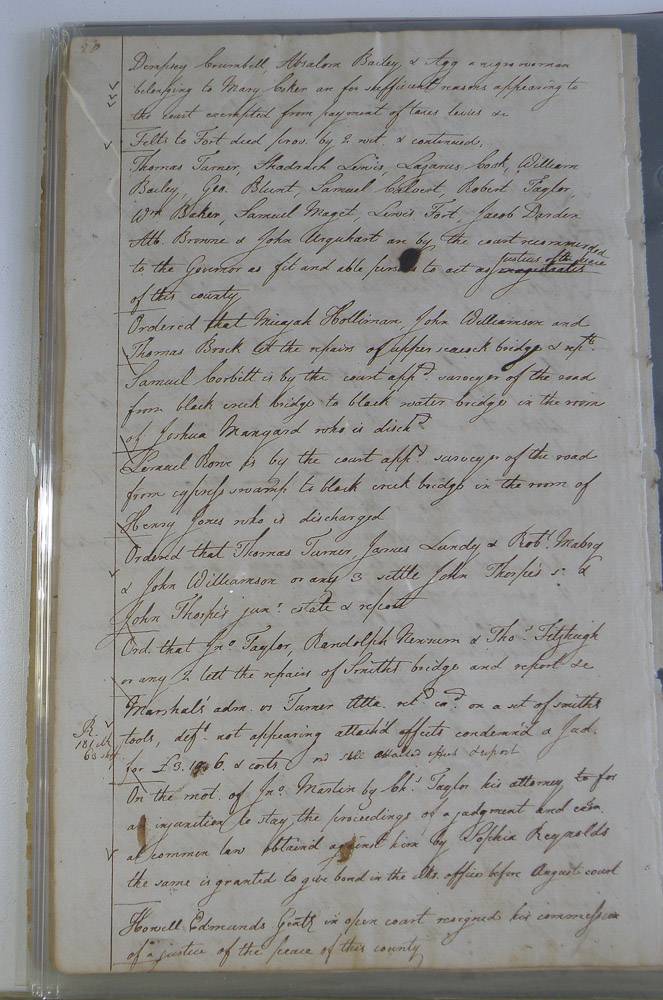 Dempsey Crumbell, Absalom Bailey, & Agg a negro woman
belonging to Mary Coker are for sufficient reasons appearing to
the court exempted from payment of taxes levies &c
Felts to Fort deed prov. by 2 wit. & continued.
Thomas Turner, Shadrach Lewis, Lazarus Cook, William
Bailey, Geo. Blunt, Samuel Calvert, Robert Taylor
Wm Baker, Samuel Maget, Lewis Fort, Jacob Darden
Alb. Browne & John Urquhart are by the court recommended
to the Governor as fit and able persons to act as justices of the peace
of this county
Ordered that Micajah Holliman, John Williamson and
Thomas Brock let the repairs of upper seacock bridge & rept.
Samuel Corbitt is by the court appd surveyor of the road
from black creek bridge to black water bridge in the room
of Joshua Mangard who is dischd
Lemuel Rowe is by the court appd surveyor of the road
from cypress swamp to black creek bridge in the room of
Henry Jones who is discharged
Ordered that Thomas Turner, James Lundy & Robt. Mabry
& John Williamson or any 3 settle John Thorpe's sr. &
John Thorpe's junr. estate & report
Ord. that Jno. Taylor, Randolph Newsum & Thos. Fitzhugh
or any 2 lett the repairs of Smiths bridge and report &c
Marshals' adm. vs Turner Atta. retd. exd. on a set of smiths
tools, deft. not appearing attach'd effects condemn'd & Jud.
for £3. 6. & costs
On the mot. of Jno. Martin by Ch. Taylor his attorney for
an injunction to stay the proceedings of a judgment and exon.
at common law obtain'd against him by Sophia Reynolds
the same is granted to give bond in the office before August court
Howell Edmunds Gent. in open court resigned his commission
of a justice of the peace of this county